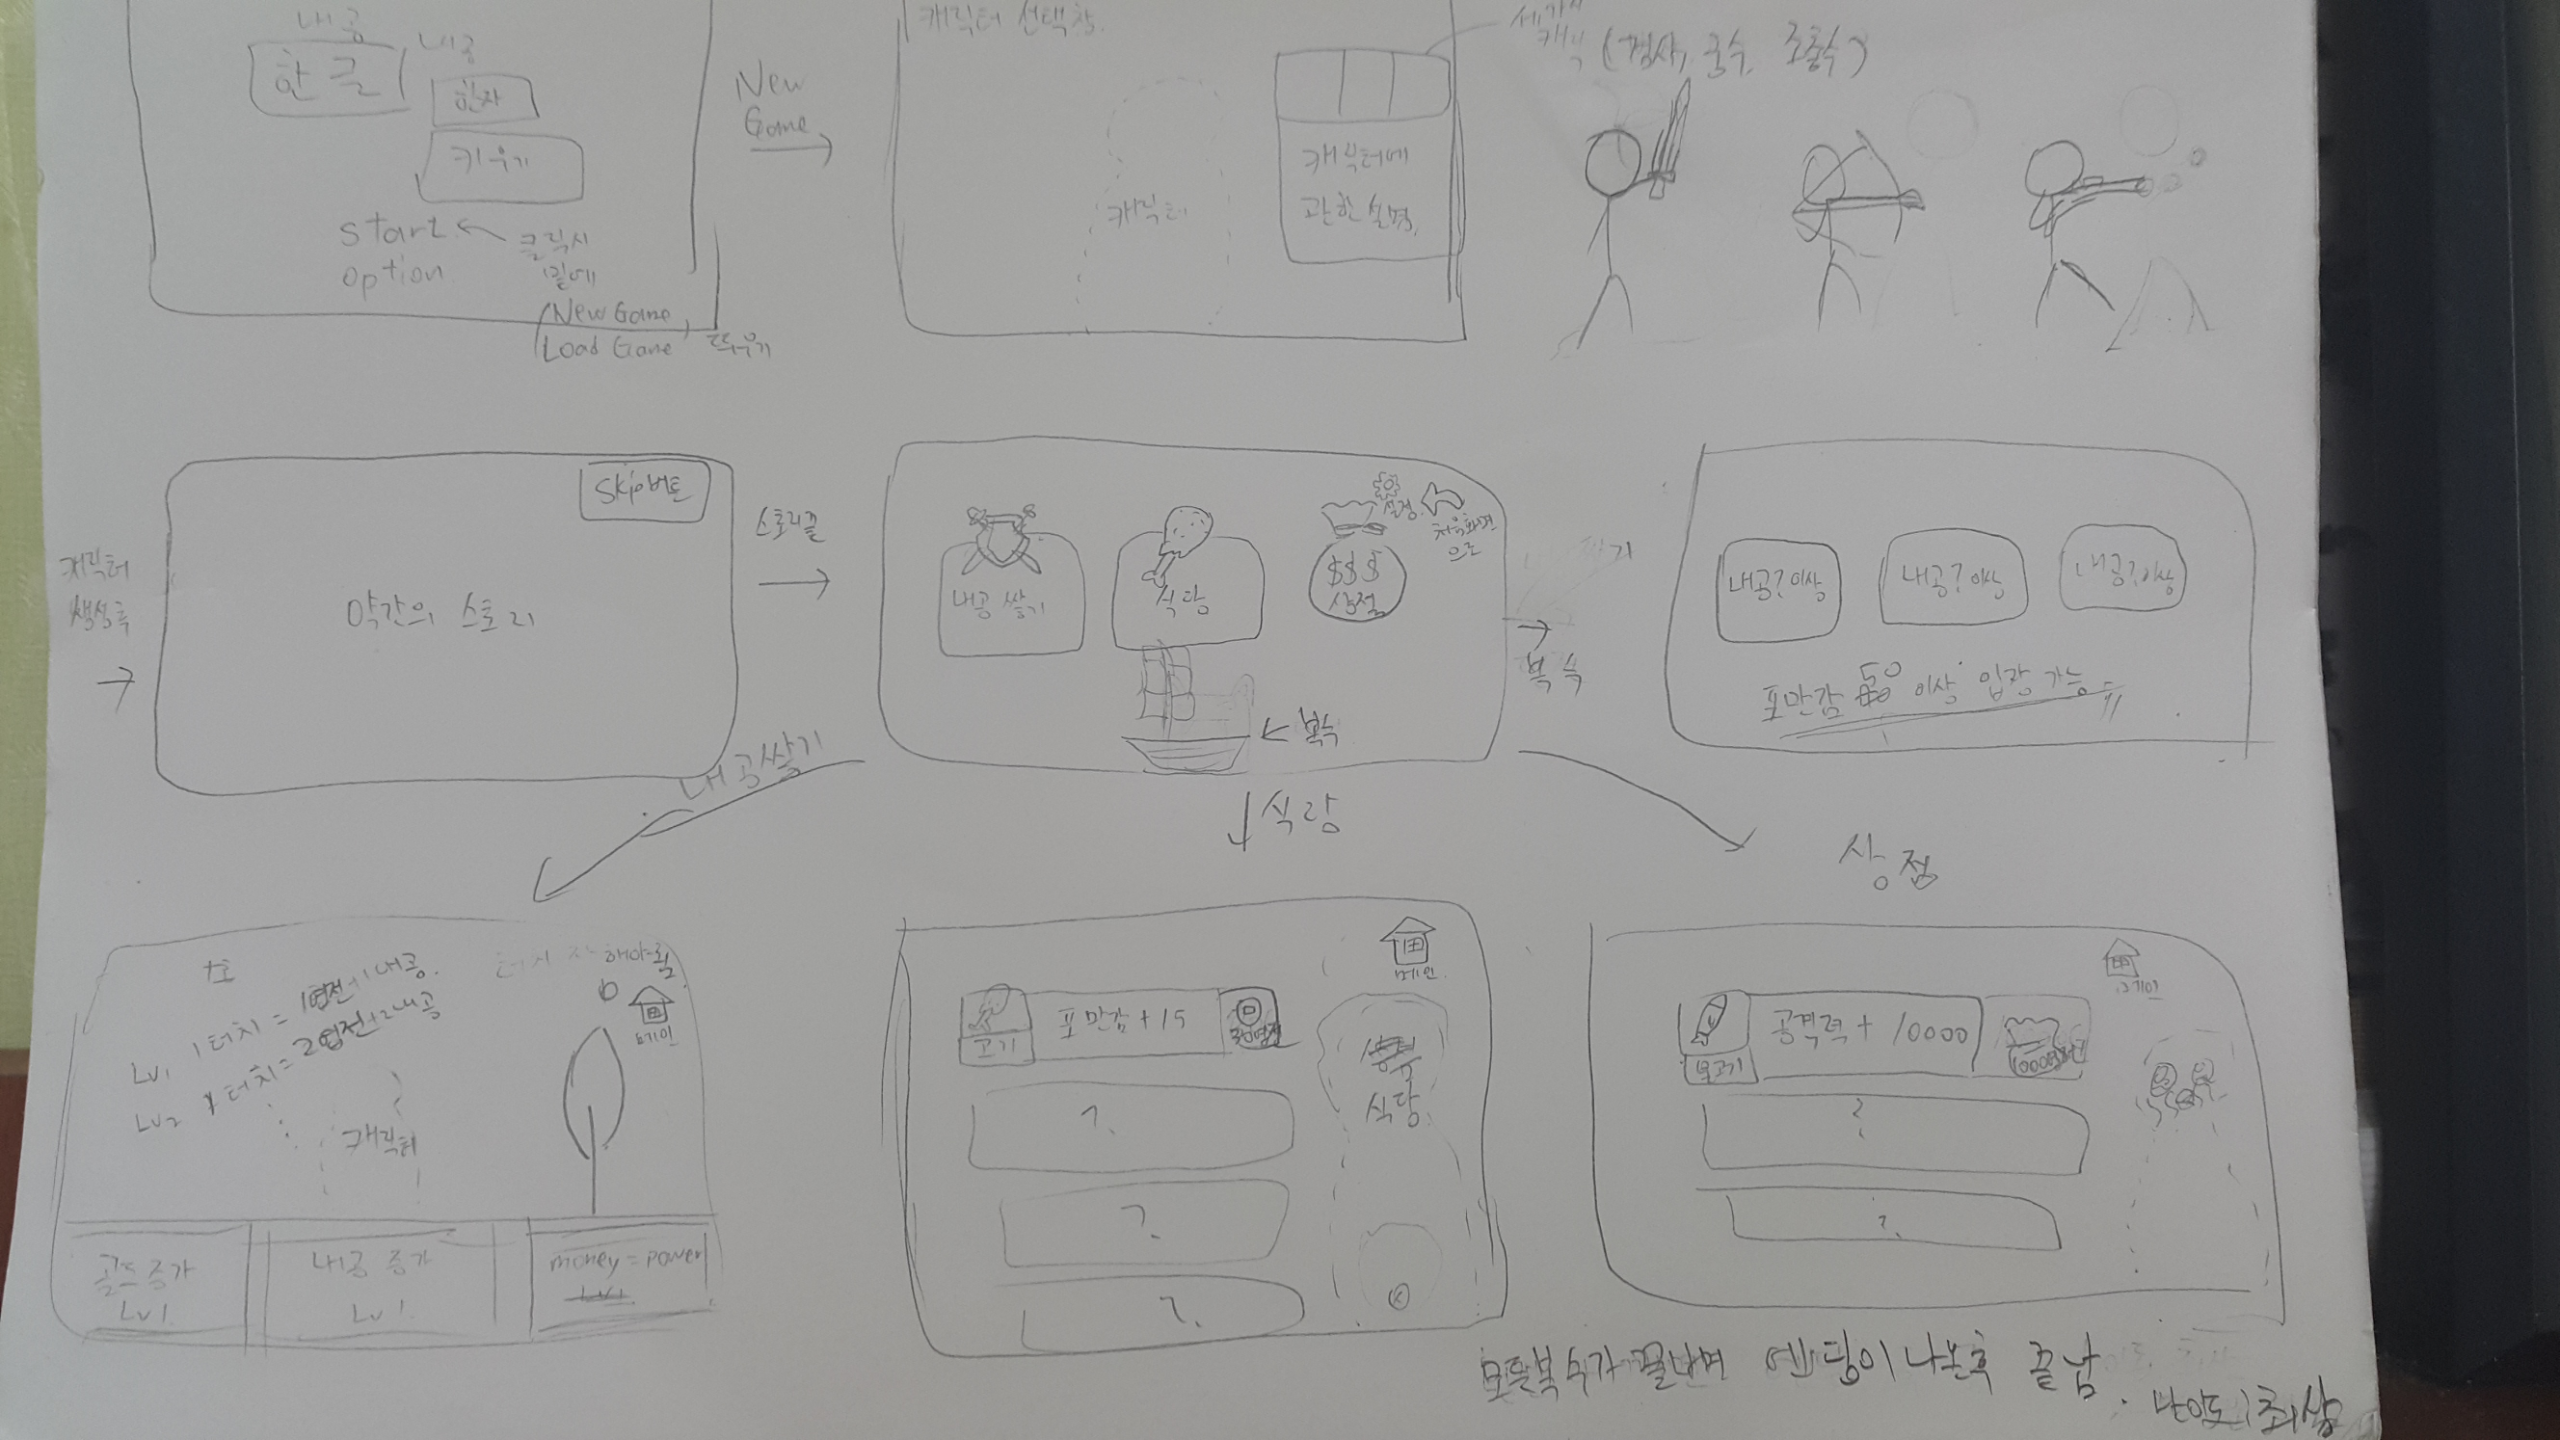 내공
한글
내공
한자
키우기
start
option
클릭시
밑에
New Game
Load Game
띄우기
New
Game
캐릭터 선택창.
캐릭터
캐릭터에
관한 설명.
세가지
캐릭 (검사, 궁수, 조총수)
캐릭터
생성후
skip버튼
약간의 스토리
스토리끝
내공 쌓기
식당
$$$
상점
설정
처음화면
으로
복수
복수
내공?이상
내공?이상
내공?이상
포만감 50 이상 입장 가능
내공쌓기
식당
상점
Lv1 1터치 = 1엽전+1내공.
Lv2 1터치 = 2엽전+2내공
해야됨
메인
캐릭터
골드증가
Lv1
내공 증가
Lv1
money=power
Lv1
메인
고기
포만감+15
?
?
?
식당
메인
공격력+10000
?
?
모든복수가 끝나면 엔딩이 나온후 끝남.
난이도:최상